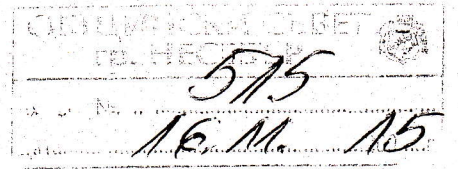 ОБЩИНСКИ СЪВЕТ
ГР. НЕСЕБЪР
№ 515
16. 11. 15